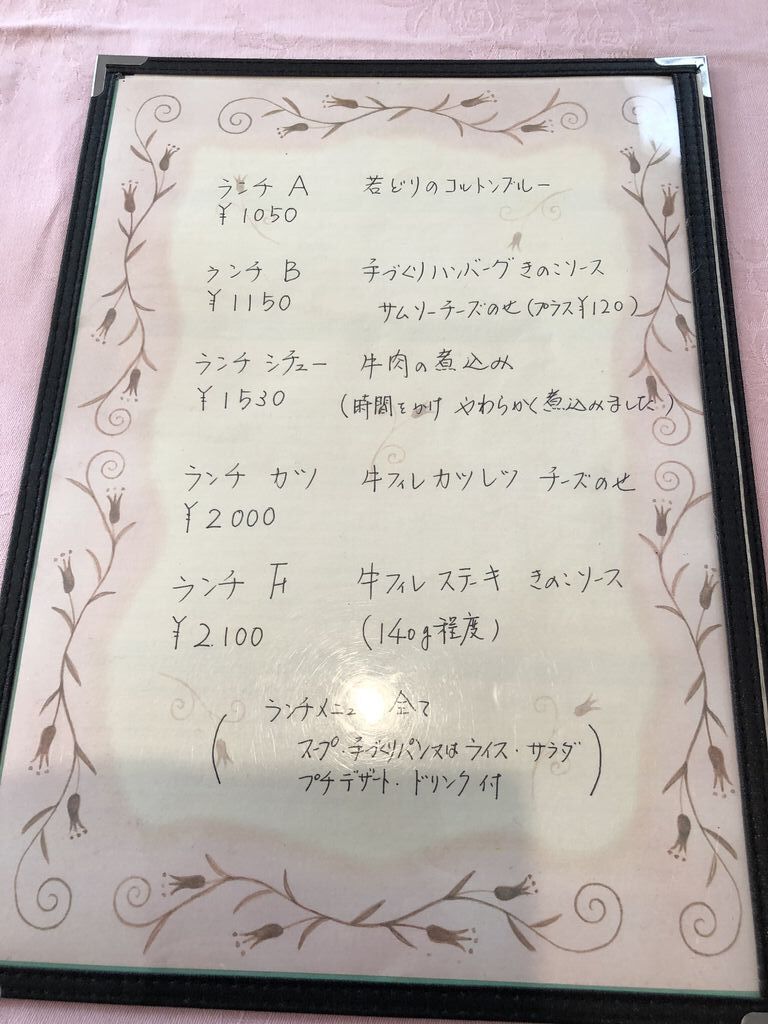 ランチ A 若どりのコルドンブルー
¥1050
ランチ B 手づくりハンバーグきのこソース
¥1150 サムソーチーズのせ(プラス¥120)
ランチ シチュー 牛肉の煮込み
¥1530 (時間をかけ やわらかく煮込みました)
ランチ カツ 牛フィレカツレツ チーズのせ
¥2000
ランチ 牛フィレステーキ きのこソース
¥2.100 (140g程度)
ランチメニュー 全て
スープ・手づくりパン又はライス・サラダ
プチデザート・ドリンク付